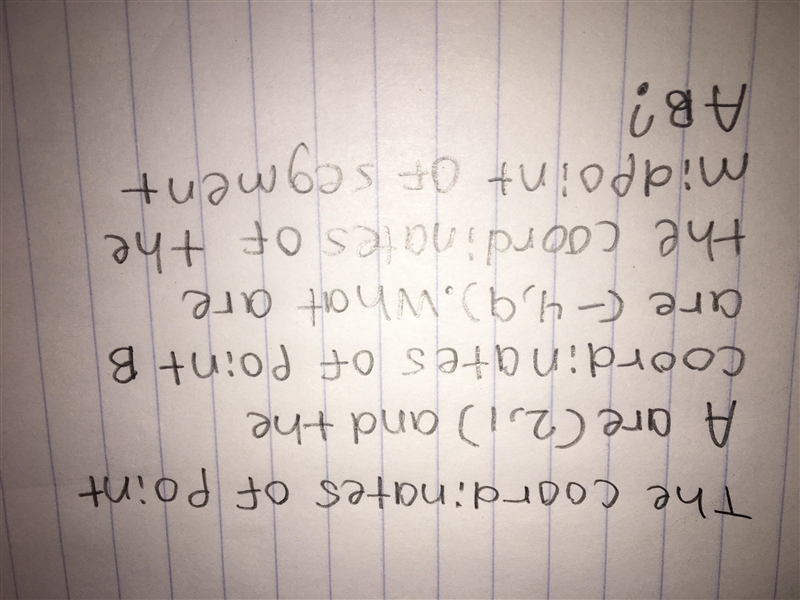 The coordinates of point
A are (2,1) and the
coordinates of point B
are (-4,9). What are
the coordinates of the
midpoint of segment
AB?